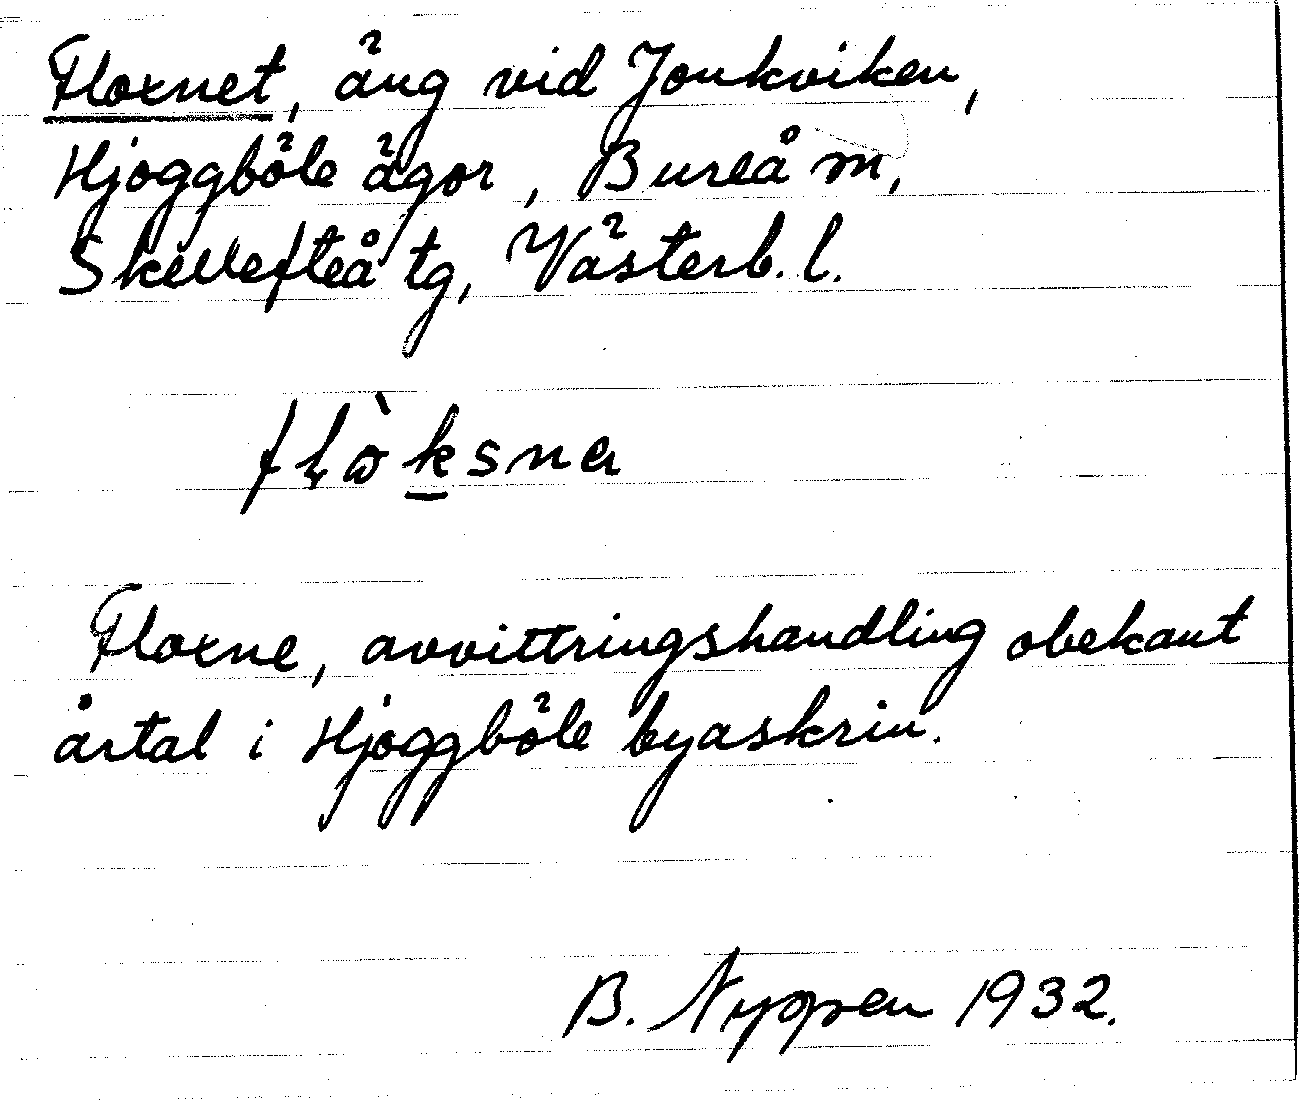 Floxnet, äng vid Jonkviken,
Hjoggböle ägor, Bureå m,
Skellefteå tg, Västerb. l.
Floxne, avvittringshandling obekant
årtal i Hjoggböle byaskrin.
B. Nyppen 1932.